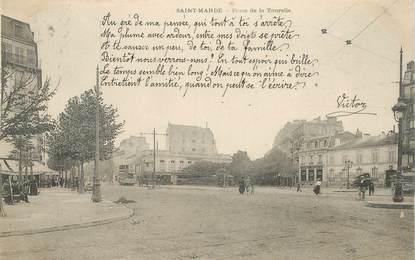 SAINT-MANDÉ - Place de la Tourelle
Au gré de ma pensée, qui tout à toi s'arrête
Ma plume avec ardeur, entre mes doigts se prête
A te causer un peu, de toi, de ta famille
Bientôt nous verrons-nous! En tout espoir qui brille
Le temps semble bien long! Mais ce qu'on aime à dire
Entretient l'amitié, quand on peut se l'écrire.
Victor